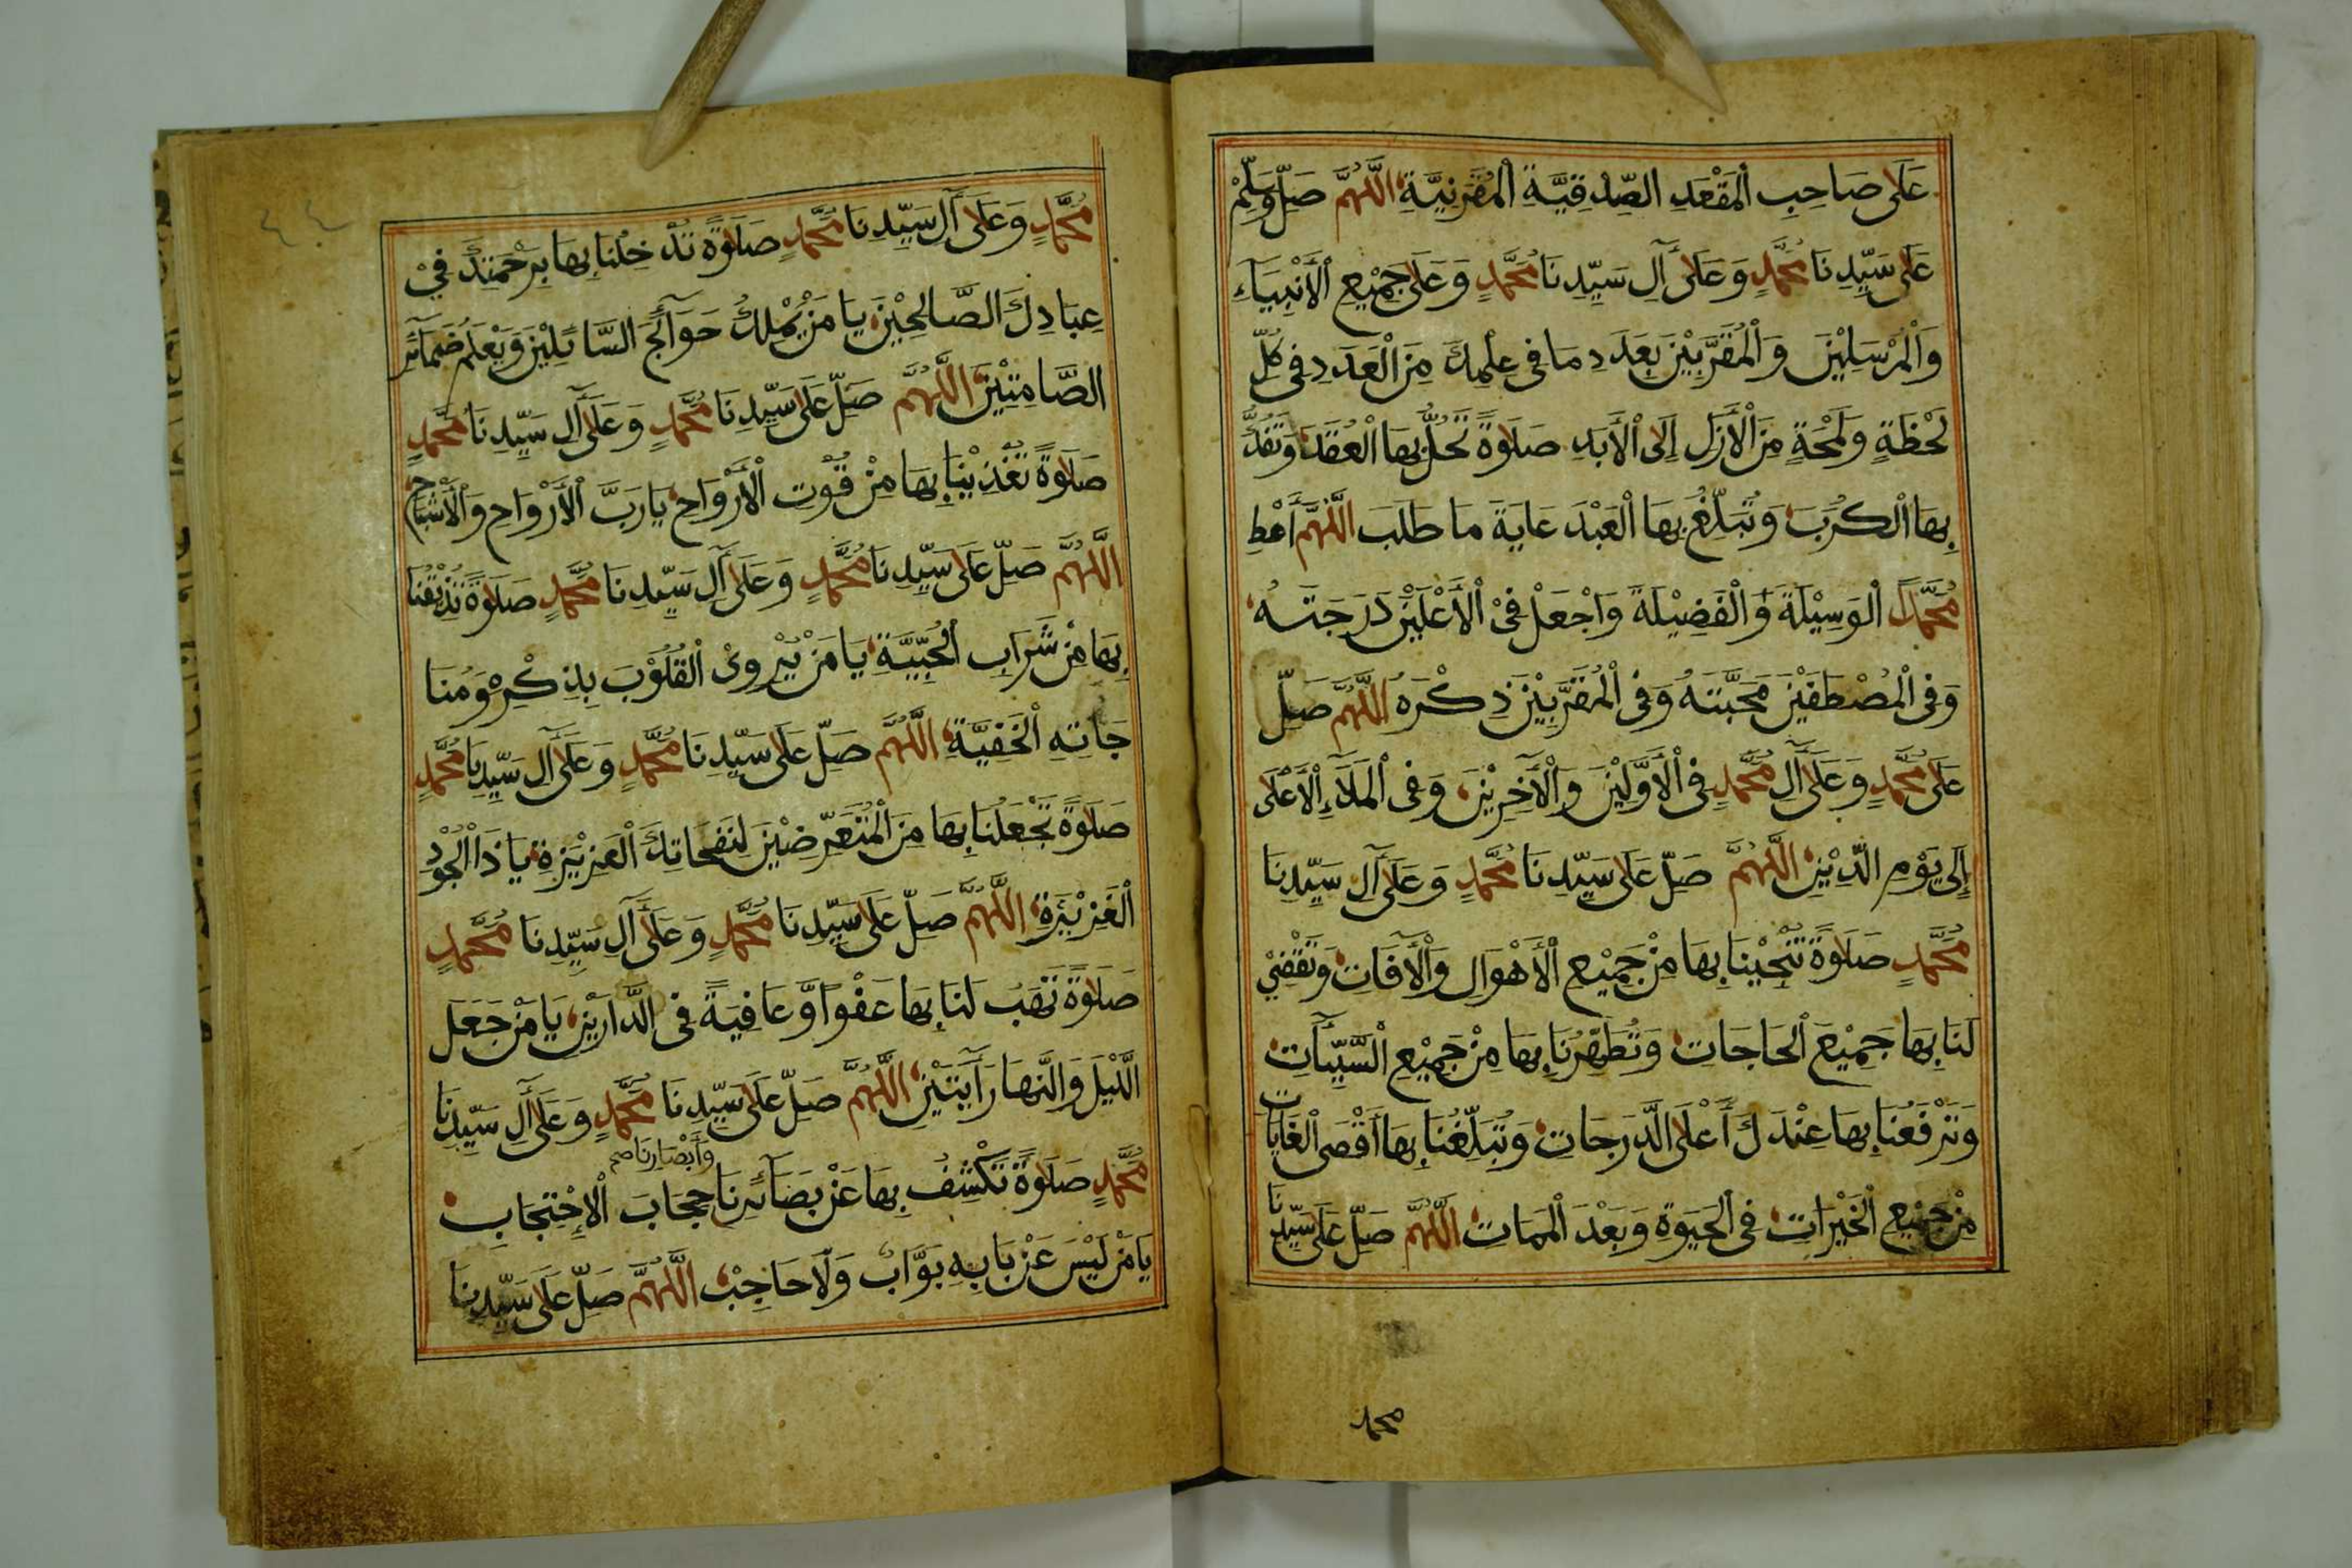 عَلَى صَاحِبِ الْمَقْعَدِ الصِّدْقِيَّةِ الْمُقَرَنِيَّةِ اللَّهُمَّ صَلِّ وَسَلِّمْ
عَلَى سَيِّدِنَا مُحَمَّدٍ وَعَلَى آلِ سَيِّدِنَا مُحَمَّدٍ وَعَلَى جَمِيْعِ الْأَنْبِيَآءِ
وَالْمُرْسَلِيْنَ وَالْمُقَرَّبِيْنَ بِعَدَدِ مَا فِى عِلْمِكَ مِنَ الْعَدَدِ فِى كُلِّ
لَحْظَةٍ وَلَمْحَةٍ مِنَ الْأَزَلِ إِلَى الْأَبَدِ صَلَوةً تَحُلُّ بِهَا الْعُقَدَ وَتَفُكُّ
بِهَا الْكُرَبَ وَتُبَلِّغُ بِهَا الْعَبْدَ غَايَةَ مَا طَلَبَ اللَّهُمَّ أَعْطِ
مُحَمَّدًا الْوَسِيْلَةَ وَالْفَضِيْلَةَ وَاجْعَلْ فِىْ الْأَعْلَيْنَ دَرَجَتَهُ
وَفِى الْمُصْطَفَيْنَ مَحَبَّتَهُ وَفِى الْمُقَرَّبِيْنَ ذِكْرَهُ اللَّهُمَّ صَلِّ
عَلَى مُحَمَّدٍ وَعَلَى آلِ مُحَمَّدٍ فِى الْأَوَّلِيْنَ وَالْآخِرِيْنَ وَفِى الْمَلَآءِ الْأَعْلَى
إِلَى يَوْمِ الدِّيْنِ اللَّهُمَّ صَلِّ عَلَى سَيِّدِنَا مُحَمَّدٍ وَعَلَى آلِ سَيِّدِنَا
مُحَمَّدٍ صَلَوةً تُنْجِيْنَا بِهَا مِنْ جَمِيْعِ الْأَهْوَالِ وَالْآفَاتِ وَتَقْضِيْ
لَنَا بِهَا جَمِيْعَ الْحَاجَاتِ وَتُطَهِّرُنَا بِهَا مِنْ جَمِيْعِ السَّيِّأَتِ
وَتَرْفَعُنَا بِهَا عِنْدَكَ أَعْلَى الدَّرَجَاتِ وَتُبَلِّغُنَا بِهَا أَقْصَى الْغَايَاتِ
مِنْ جَمِيْعِ الْخَيْرَاتِ فِى الْحَيَوةِ وَبَعْدَ الْمَمَاتِ اللَّهُمَّ صَلِّ عَلَى سَيِّدِنَا
محمد
مُحَمَّدٍ وَعَلَى آلِ سَيِّدِنَا مُحَمَّدٍ صَلَوةً تُدْخِلُنَا بِهَا بِرَحْمَتِكَ فِيْ
عِبَادِكَ الصَّالِحِيْنَ يَا مَنْ يَمْلِكُ حَوَآئِجَ السَّائِلِيْنَ وَيَعْلَمُ ضَمَآئِرَ
الصَّامِتِيْنَ اللَّهُمَّ صَلِّ عَلَى سَيِّدِنَا مُحَمَّدٍ وَعَلَى آلِ سَيِّدِنَا مُحَمَّدٍ
صَلَوةً تُغَذِّيْنَا بِهَا مِنْ قُوْتِ الْأَرْوَاحِ يَا رَبَّ الْأَرْوَاحِ وَالْأَشْبَاحِ
اللَّهُمَّ صَلِّ عَلَى سَيِّدِنَا مُحَمَّدٍ وَعَلَى آلِ سَيِّدِنَا مُحَمَّدٍ صَلَوةً تُذِيْقُنَا
بِهَا مِنْ شَرَابِ الْحُبِّيَّةِ يَا مَنْ يُرْوِىْ الْقُلُوْبَ بِذِكْرِهْ وَمُنَا
جَاتِهِ الْخَفِيَّةِ اللَّهُمَّ صَلِّ عَلَى سَيِّدِنَا مُحَمَّدٍ وَعَلَى آلِ سَيِّدِنَا مُحَمَّدٍ
صَلَوةً تَجْعَلُنَا بِهَا مِنَ الْمُتَعَرِّضِيْنَ لِنَفَحَاتِكَ الْعَزِيْزَةِ يَا ذَا الْجُوْدِ
الْغَزِيْرَةِ اللَّهُمَّ صَلِّ عَلَى سَيِّدِنَا مُحَمَّدٍ وَعَلَى آلِ سَيِّدِنَا مُحَمَّدٍ
صَلَوةً تَهَبُ لَنَا بِهَا عَفْوًا وَّعَافِيَةً فِى الدَّارَيْنِ يَا مَنْ جَعَلَ
الَّيْلَ وَالنَّهَارَ أَيَتَيْنِ اللَّهُمَّ صَلِّ عَلَى سَيِّدِنَا مُحَمَّدٍ وَعَلَى آلِ سَيِّدِنَا
وَأَبْصَارِنَا صح
مُحَمَّدٍ صَلَوةً تَكْشِفُ بِهَا عَنْ بَصَآئِرِنَا حِجَابَ الْاِحْتِجَابِ
يَا مَنْ لَيْسَ عَنْ بَابِهِ بَوَّابٌ وَلَا حَاجِبٌ اللَّهُمَّ صَلِّ عَلَى سَيِّدِنَا